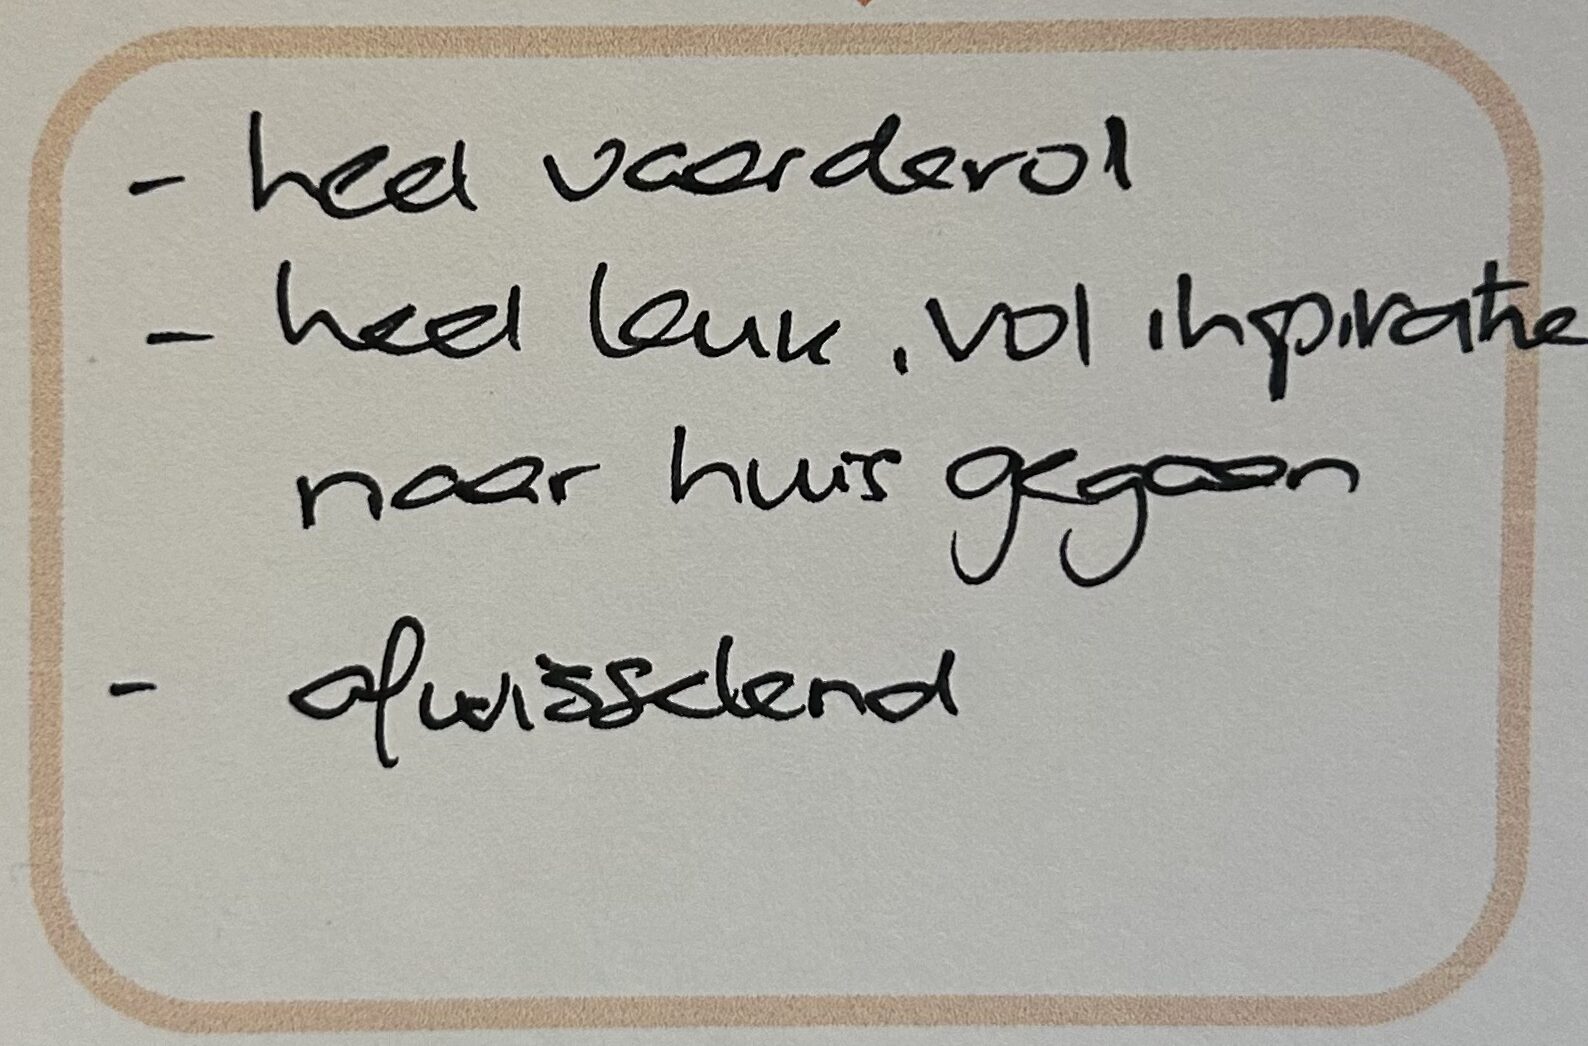 - heel waardevol
- heel leuk, vol inspiratie
naar huis gegaan
- afwisselend